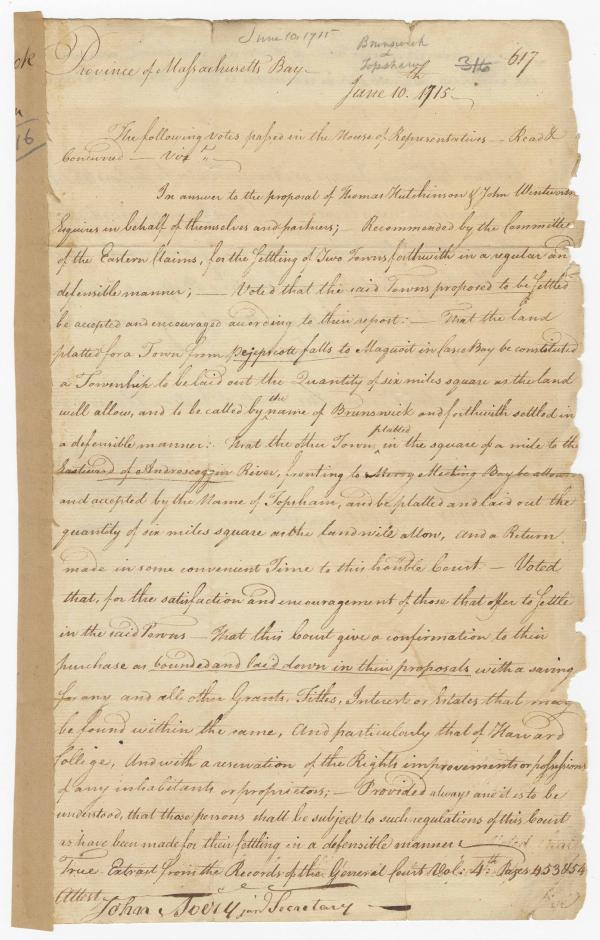 June 10. 1715
Brunswick
Topsham
316 617
ok
16
Province of Massachusetts Bay
June 10.th 1715.
The following votes passed in the House of Representatives — Read &
Concurred — Viz.t
In answer to the proposal of Thomas Hutchinson & John Wentworth
Esquires in behalf of themselves and partners; — Recommended by the Committee
of the Eastern Claims, for the settling of Two Towns forthwith in a regular an
defensible manner; — Voted that the said Towns proposed to be settled
be accepted and encouraged acording to their report: — That the land
platted for a Town from Pejepscott falls to Maquoit in Casco Bay be constituted
a Township to be laid out the Quantity of six miles square as the land
will allow, and to be called by the name of Brunswick and forthwith settled in
a defensible manner: That the other Town platted in the square of a mile to the
Eastward of Androscoggin River, fronting to Merry Meeting Bay be allow
and accepted by the Name of Topsham, and be platted and laid out the
quantity of six miles square as the land will allow, and a Return
made in some convenient Time to this hon.ble Court — Voted
that, for the satisfaction and encouragement of those that offer to settle
in the said Towns — That this Court give a confirmation to their
purchase as bounded and laid down in their proposals with a saving
for any and all other Grants, Titles, Interest or Estates that may
be found within the same, And particularly that of Harvard
College, And with a reservation of the Rights improvements or possessions
of any inhabitants or proprietors; — Provided always and it is to be
understood, that those persons shall be subject to such regulations of this Court
as have been made for their settling in a defensible manner
True Extract from the Records of the General Court Vol: 4.th Pages 453 & 454
Attest
John Avery jun.r Secretary